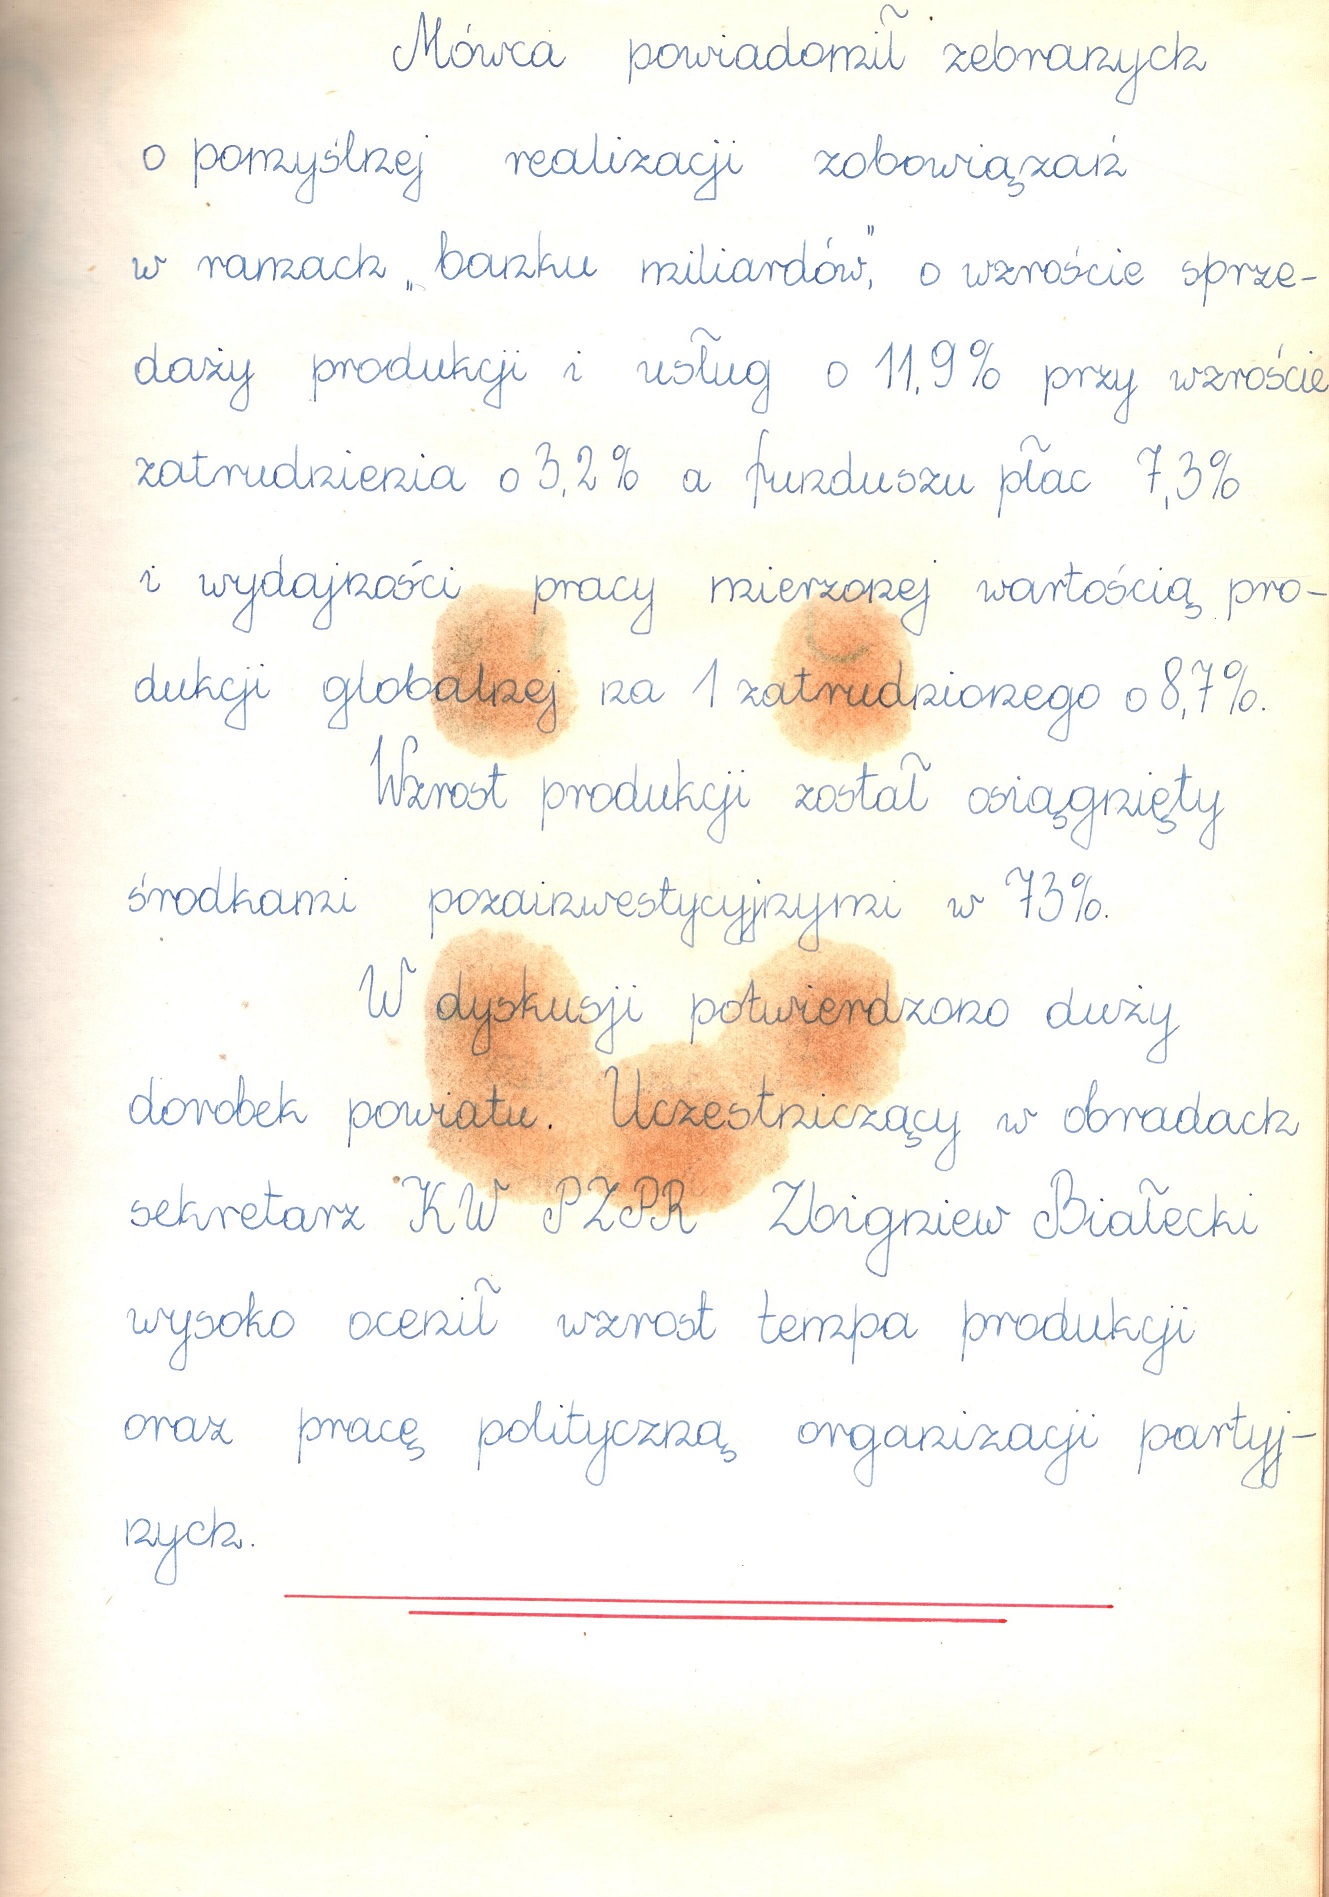 Mówca powiadomił zebranych
o pomyślnej realizacji zobowiązań
w ramach „banku miliardów", o wzroście sprze-
daży produkcji i usług o 11,9% przy wzroście
zatrudnienia o 3,2% a funduszu płac 7,3%
i wydajności pracy mierzonej wartością pro-
dukcji globalnej na 1 zatrudnionego o 8,7%.
Wzrost produkcji został osiągnięty
środkami pozainwestycyjnymi w 73%.
W dyskusji potwierdzono duży
dorobek powiatu. Uczestniczący w obradach
sekretarz KW PZPR Zbigniew Białecki
wysoko ocenił wzrost tempa produkcji
oraz pracę polityczną organizacji partyj-
nych.